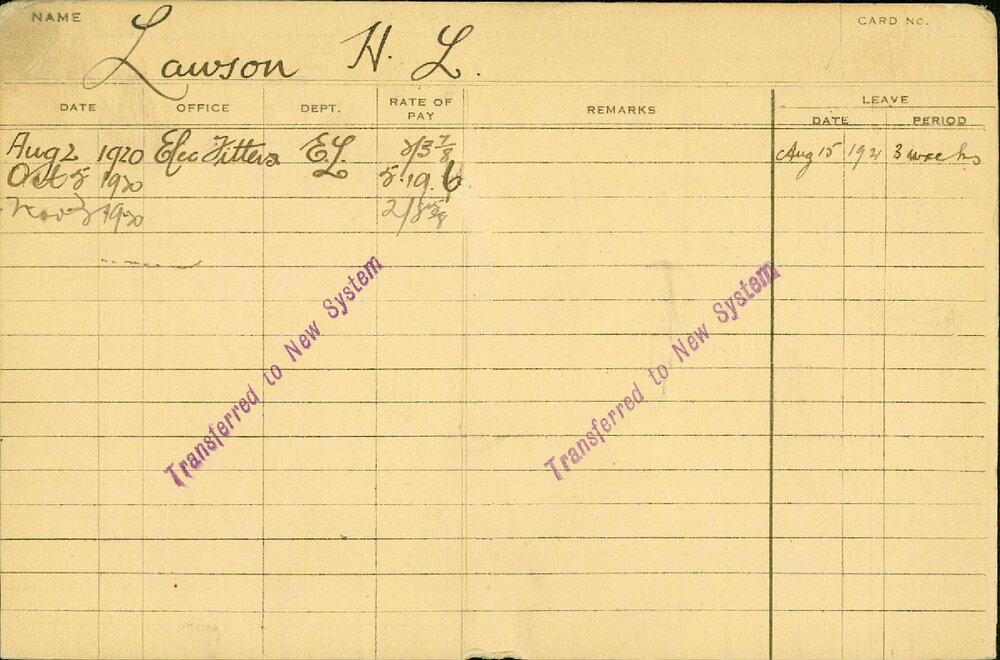 NAME
Lawson H. L.
CARD NO.
DATE OFFICE DEPT. RATE OF PAY REMARKS LEAVE
DATE PERIOD
Aug 2 1920 Elec Fitters E.L. 2/3 7/8 Aug 15 1921 3 weeks
Oct 5 1920 5.19.6
Nov 3 1920 2/8 5/8
Transferred to New System
Transferred to New System